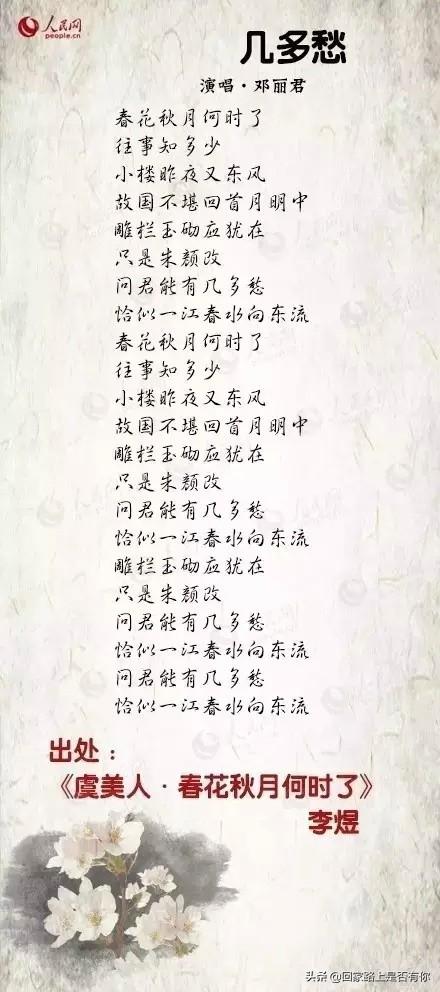 人民网
people.cn
几多愁
演唱·邓丽君
春花秋月何时了
往事知多少
小楼昨夜又东风
故国不堪回首月明中
雕栏玉砌应犹在
只是朱颜改
问君能有几多愁
恰似一江春水向东流
春花秋月何时了
往事知多少
小楼昨夜又东风
故国不堪回首月明中
雕栏玉砌应犹在
只是朱颜改
问君能有几多愁
恰似一江春水向东流
雕栏玉砌应犹在
只是朱颜改
问君能有几多愁
恰似一江春水向东流
问君能有几多愁
恰似一江春水向东流
出处：
《虞美人·春花秋月何时了》
李煜
头条 @回家路上是否有你